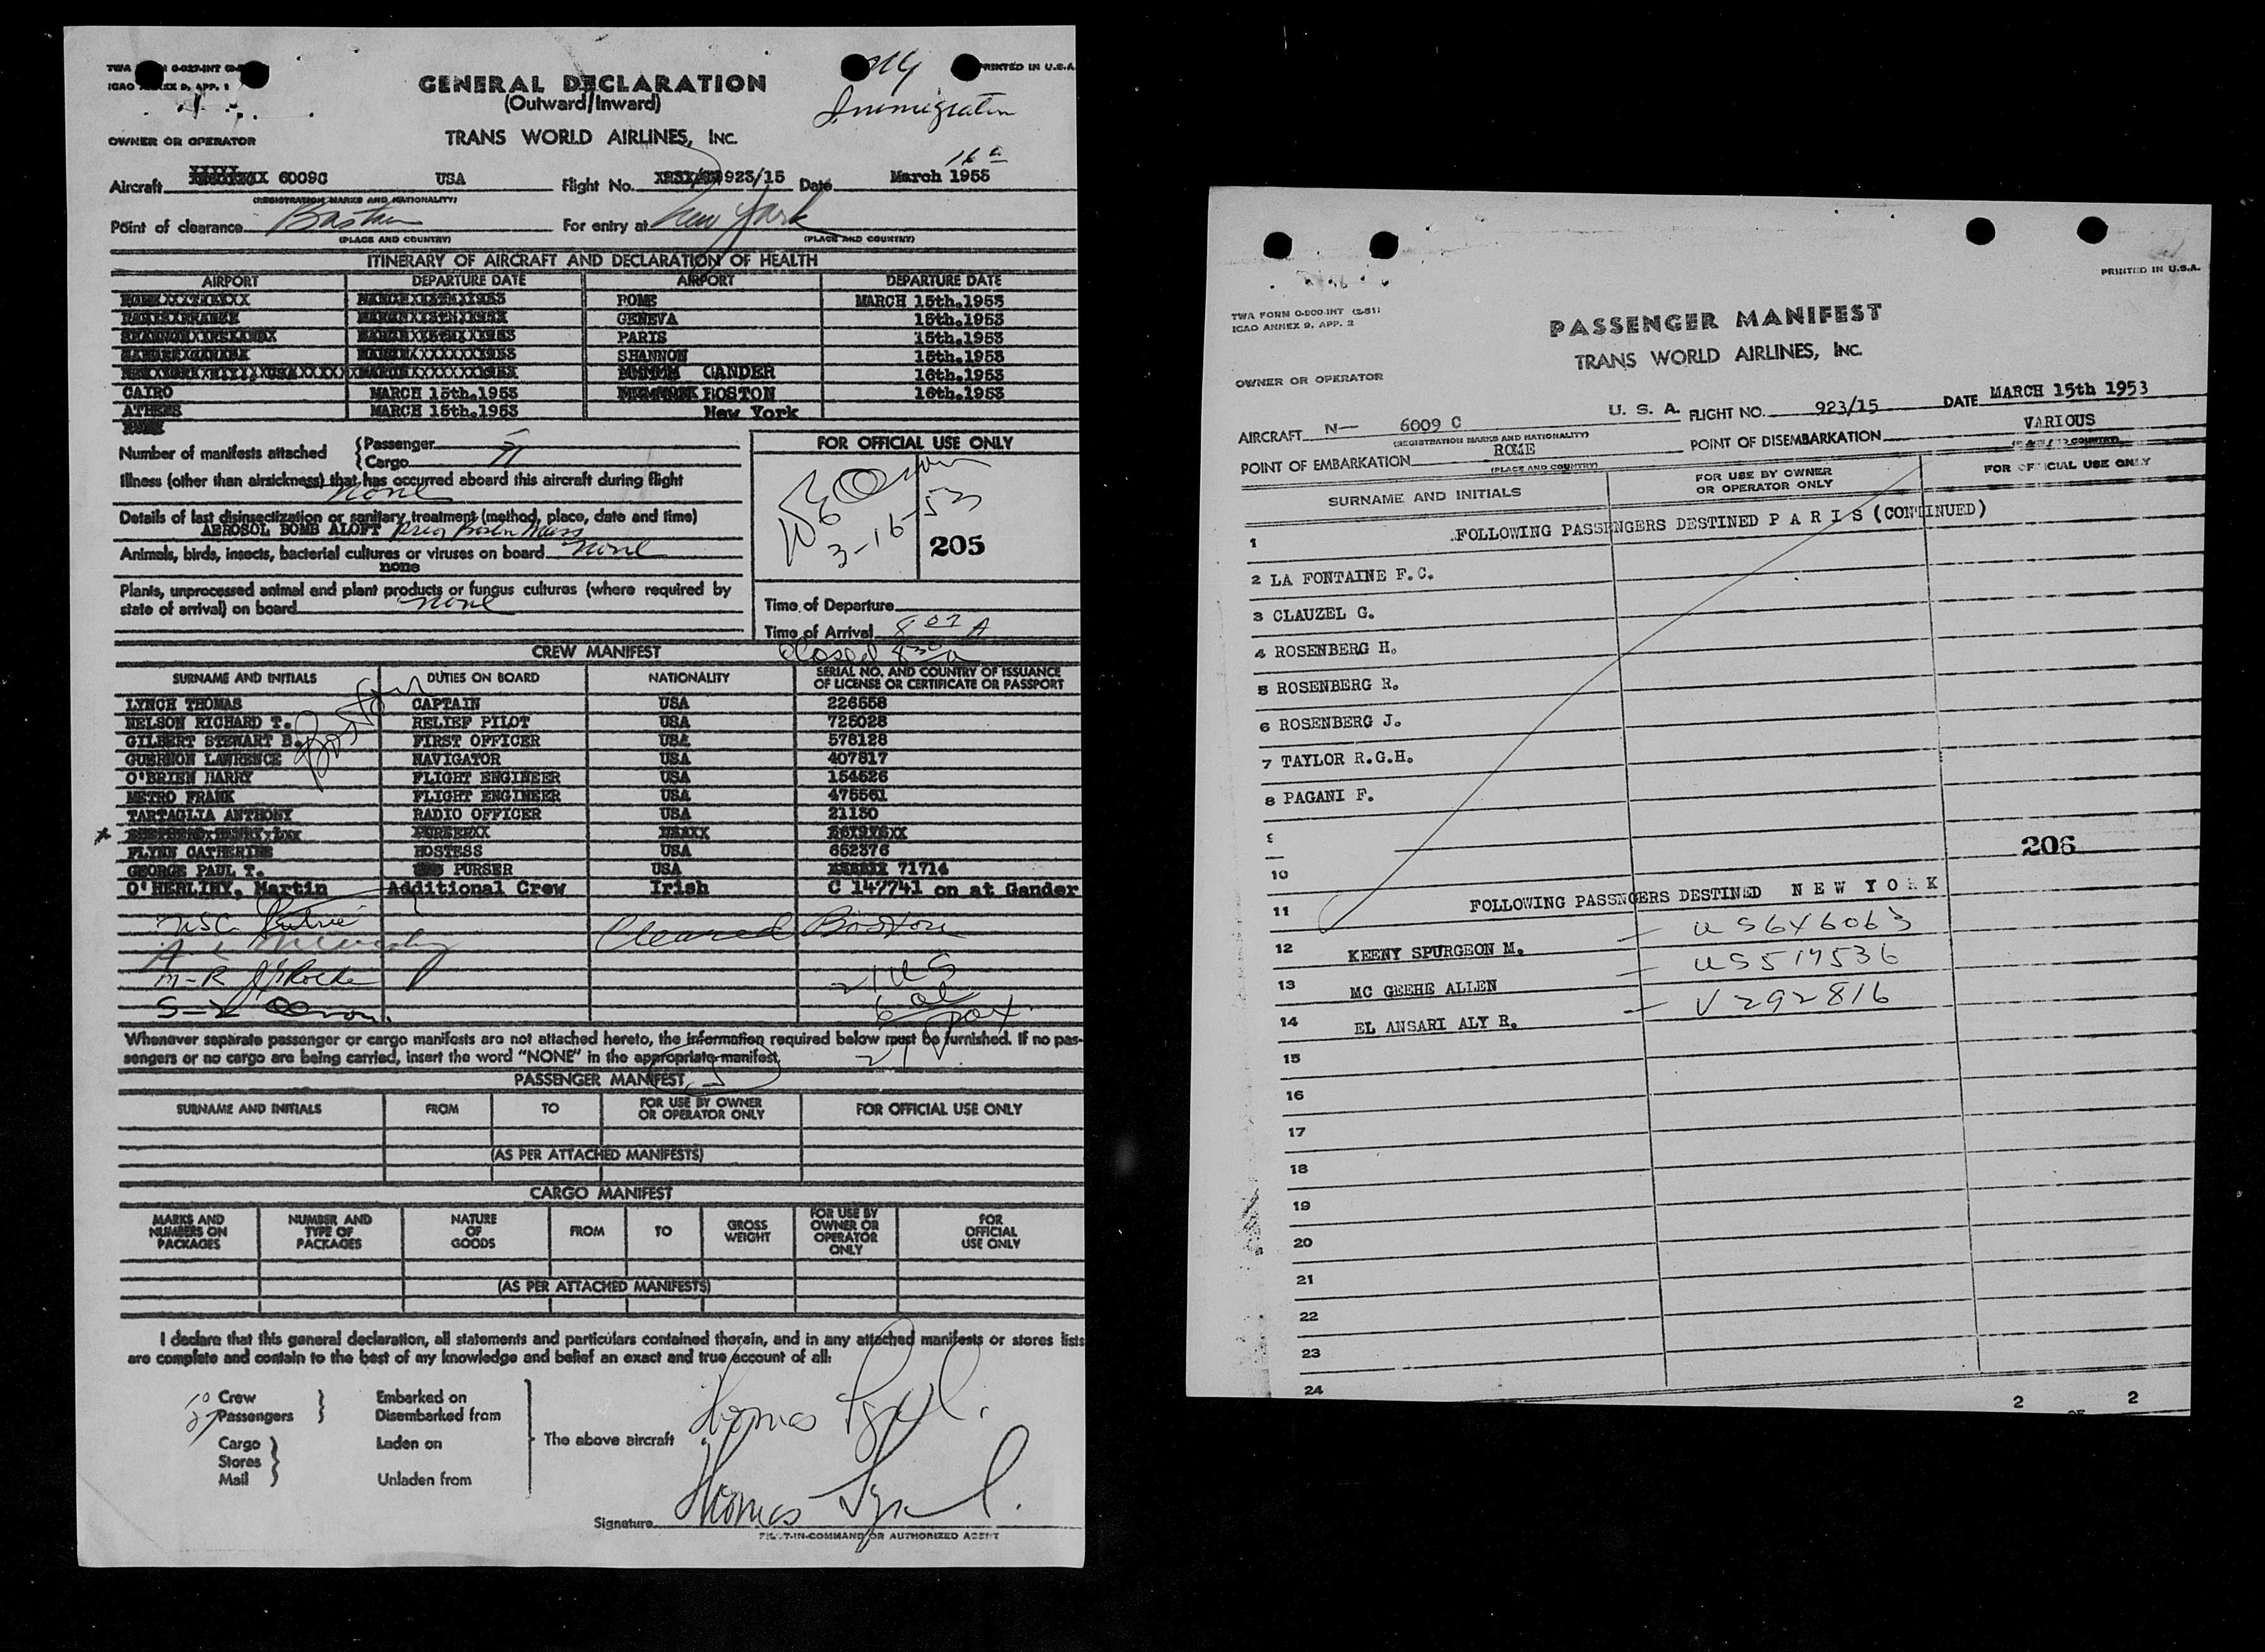 TWA 0-027-INT
ICAO ANNEX 9, APP. 1
GENERAL DECLARATION
(Outward/Inward)
PRINTED IN U.S.A.
Immigration
OWNER OR OPERATOR
TRANS WORLD AIRLINES, INC.
16
Aircraft 6009C USA Flight No. 923/15 Date March 1953
(REGISTRATION MARKS AND NATIONALITY)
Point of clearance Boston For entry at New York
(PLACE AND COUNTRY) (PLACE AND COUNTRY)
ITINERARY OF AIRCRAFT AND DECLARATION OF HEALTH
AIRPORT DEPARTURE DATE AIRPORT DEPARTURE DATE
ROME MARCH 15th.1953
GENEVA 15th.1953
PARIS 15th.1953
SHANNON 15th.1953
GANDER 16th.1953
CAIRO MARCH 15th.1953 BOSTON 16th.1953
ATHENS MARCH 15th.1953 New York
Number of manifests attached Passenger
Cargo
FOR OFFICIAL USE ONLY
Illness (other than airsickness) that has occurred aboard this aircraft during flight
none
3-16-53
205
Details of last disinsectization or sanitary treatment (method, place, date and time)
AEROSOL BOMB ALOFT Prior Boston Mass
Animals, birds, insects, bacterial cultures or viruses on board none
none
Plants, unprocessed animal and plant products or fungus cultures (where required by
state of arrival) on board none
Time of Departure
Time of Arrival 8 07 A
Closed 8 30 a
CREW MANIFEST
SURNAME AND INITIALS DUTIES ON BOARD NATIONALITY SERIAL NO. AND COUNTRY OF ISSUANCE
OF LICENSE OR CERTIFICATE OR PASSPORT
Boston
LYNCH THOMAS CAPTAIN USA 226558
NELSON RICHARD T. RELIEF PILOT USA 725028
GILBERT STEWART B. FIRST OFFICER USA 578128
GUERNON LAWRENCE NAVIGATOR USA 407817
O'BRIEN HARRY FLIGHT ENGINEER USA 154526
METRO FRANK FLIGHT ENGINEER USA 475561
TARTAGLIA ANTHONY RADIO OFFICER USA 21130
FLYNN CATHERINE HOSTESS USA 652376
GEORGE PAUL T. PURSER USA 71714
O'HERLIHY, Martin Additional Crew Irish C 147741 on at Gander
Cleared Boston
21 US
6 al
Whenever separate passenger or cargo manifests are not attached hereto, the information required below must be furnished. If no pas-
sengers or no cargo are being carried, insert the word "NONE" in the appropriate manifest.
PASSENGER MANIFEST
SURNAME AND INITIALS FROM TO FOR USE BY OWNER
OR OPERATOR ONLY FOR OFFICIAL USE ONLY
(AS PER ATTACHED MANIFESTS)
CARGO MANIFEST
MARKS AND
NUMBERS ON
PACKAGES NUMBER AND
TYPE OF
PACKAGES NATURE
OF
GOODS FROM TO GROSS
WEIGHT FOR USE BY
OWNER OR
OPERATOR
ONLY FOR
OFFICIAL
USE ONLY
(AS PER ATTACHED MANIFESTS)
I declare that this general declaration, all statements and particulars contained therein, and in any attached manifests or stores lists
are complete and contain to the best of my knowledge and belief an exact and true account of all:
10 Crew Embarked on
27 Passengers Disembarked from
Cargo Laden on The above aircraft
Stores
Mail Unladen from
Thomas
Signature Thomas
PILOT-IN-COMMAND OR AUTHORIZED AGENT
PRINTED IN U.S.A.
TWA FORM O-800-INT (2-51)
ICAO ANNEX 9, APP. 2
PASSENGER MANIFEST
TRANS WORLD AIRLINES, INC.
OWNER OR OPERATOR
AIRCRAFT N— 6009 C U. S. A. FLIGHT NO. 923/15 DATE MARCH 15th 1953
(REGISTRATION MARKS AND NATIONALITY)
POINT OF EMBARKATION ROME POINT OF DISEMBARKATION VARIOUS
(PLACE AND COUNTRY) (PLACE AND COUNTRY)
SURNAME AND INITIALS FOR USE BY OWNER
OR OPERATOR ONLY FOR OFFICIAL USE ONLY
1 FOLLOWING PASSENGERS DESTINED P A R I S (CONTINUED)
2 LA FONTAINE F.C.
3 CLAUZEL G.
4 ROSENBERG H.
5 ROSENBERG R.
6 ROSENBERG J.
7 TAYLOR R.G.H.
8 PAGANI F.
9
206
10
11 FOLLOWING PASSNGERS DESTINED N E W Y O R K
12 KEENY SPURGEON M. — US646063
13 MC GEEHE ALLEN — US517536
14 EL ANSARI ALY R. — V292816
15
16
17
18
19
20
21
22
23
24
2 2